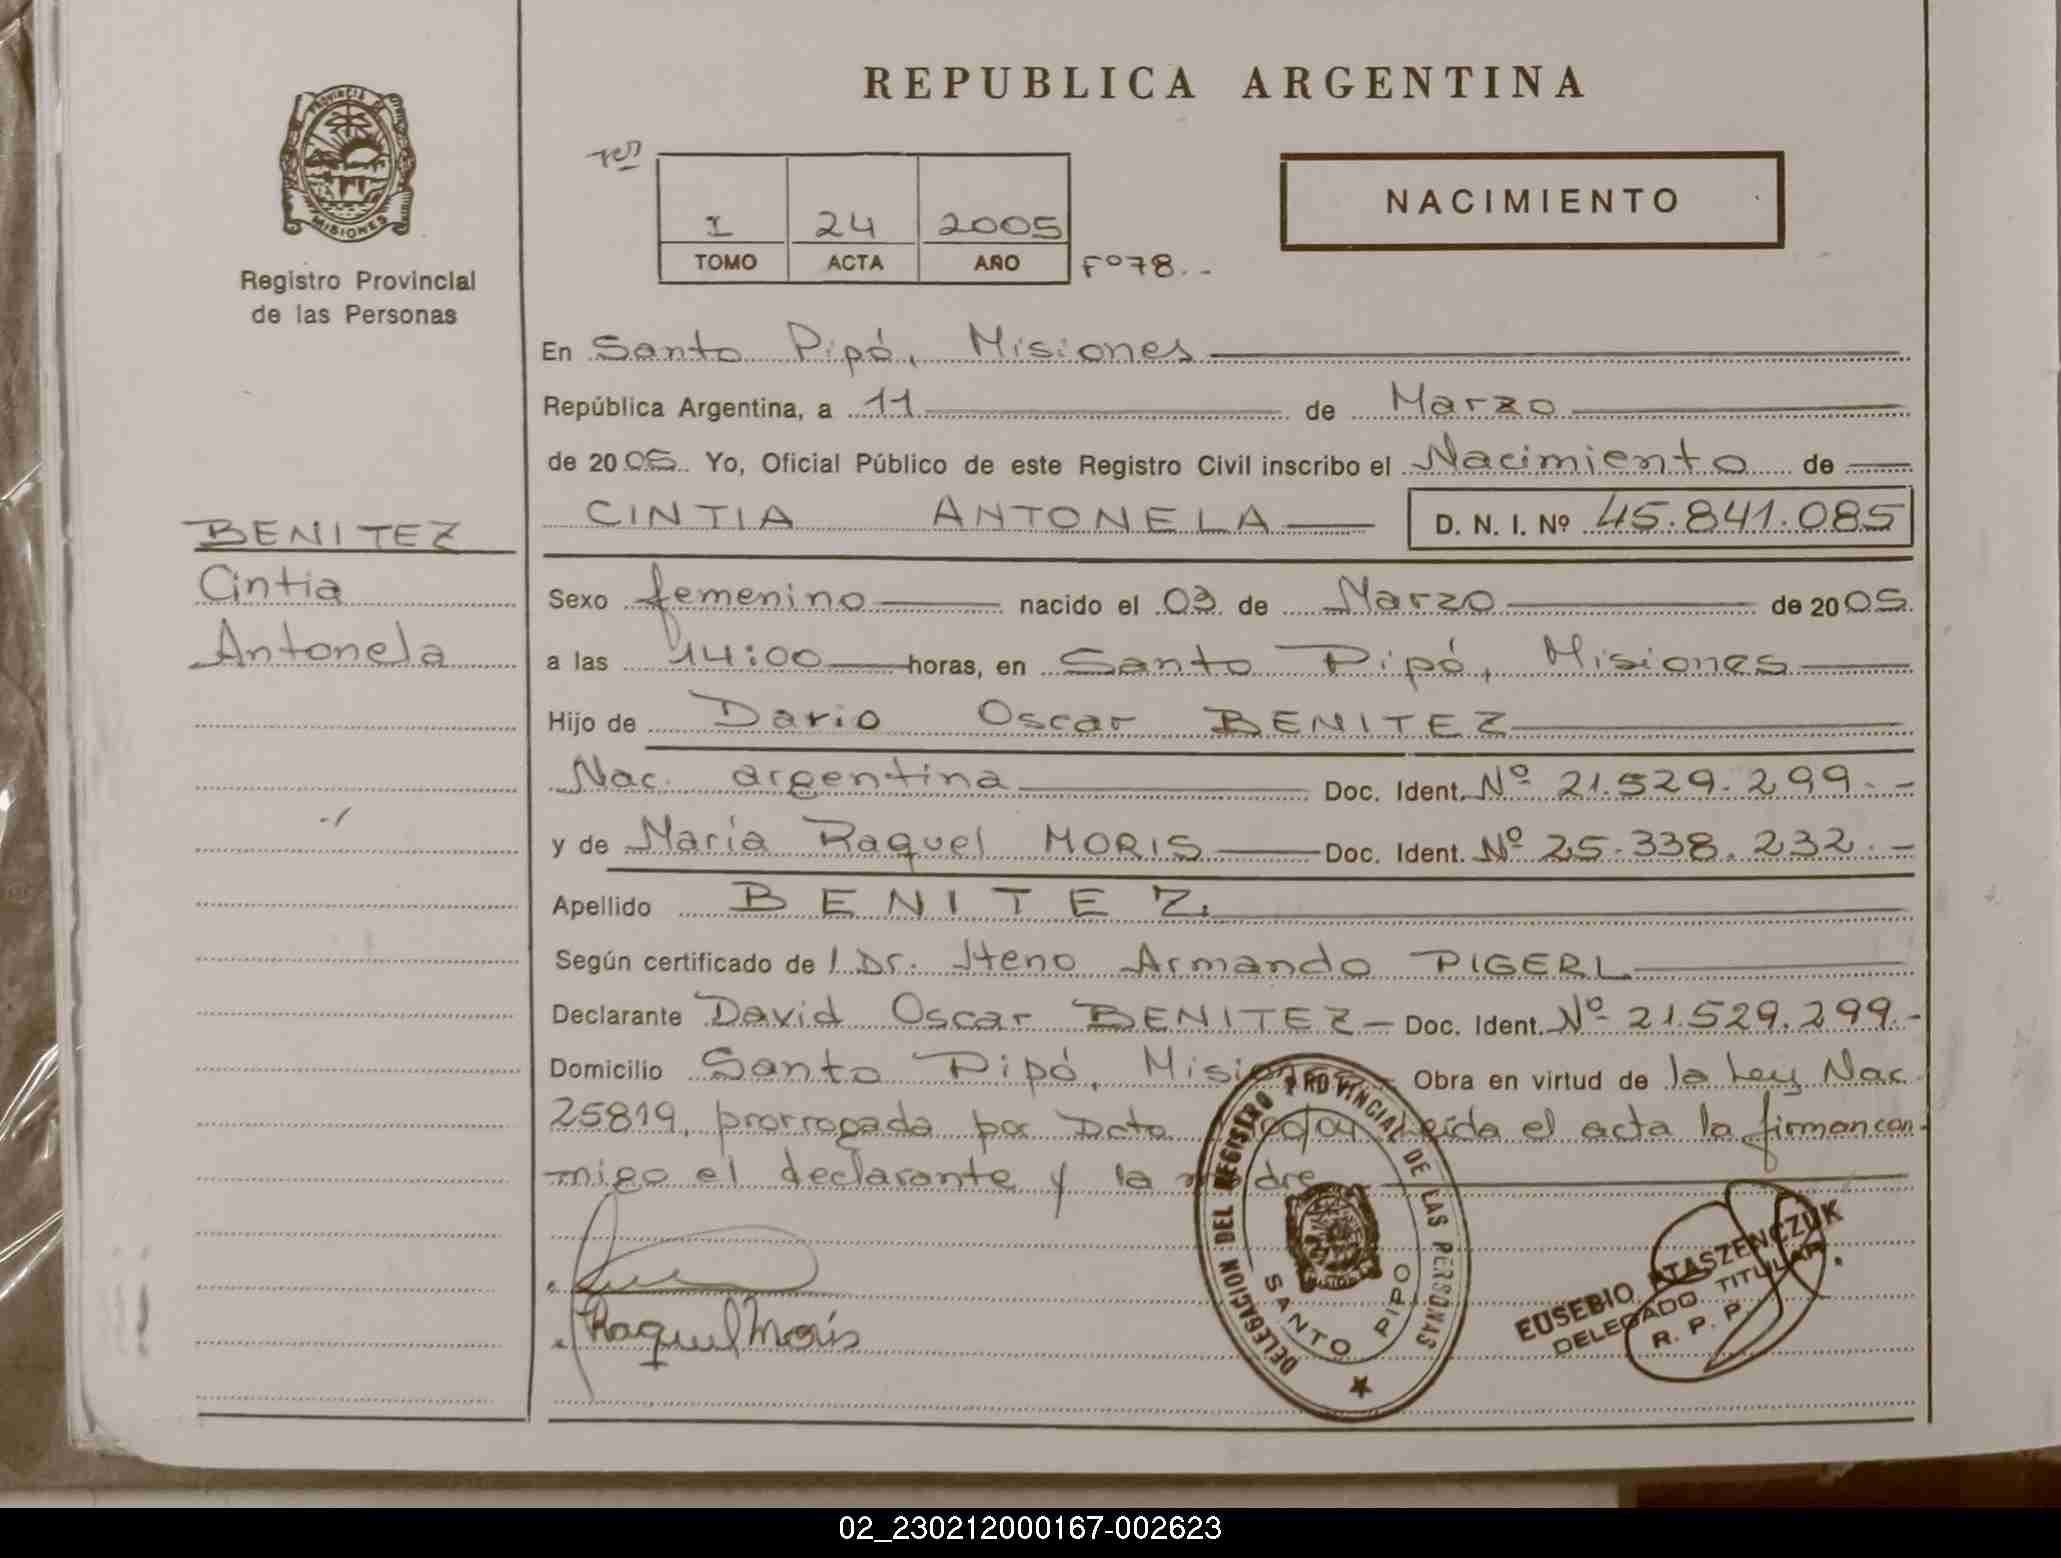 REPUBLICA ARGENTINA
PROVINCIA DE
MISIONES
Registro Provincial
de las Personas
1er
I 24 2005
TOMO ACTA AÑO Fº78.-
NACIMIENTO
En Santo Pipó, Misiones
República Argentina, a 11 de Marzo
de 2005. Yo, Oficial Público de este Registro Civil inscribo el Nacimiento de
CINTIA ANTONELA D. N. I. Nº 45.841.085
BENITEZ
Cintia
Antonela
Sexo femenino nacido el 03 de Marzo de 2005.
a las 14:00 horas, en Santo Pipó, Misiones
Hijo de Dario Oscar BENITEZ
Nac. argentina Doc. Ident. Nº 21.529.299.-
y de María Raquel MORIS Doc. Ident. Nº 25.338.232.-
Apellido BENITEZ.
Según certificado de / Dr. Heno Armando PIGERL
Declarante David Oscar BENITEZ - Doc. Ident. Nº 21.529.299.-
Domicilio Santo Pipó, Misiones Obra en virtud de la Ley Nac.
25819, prorrogada por Dcto Leída el acta la firman con-
migo el declarante y la madre
Raquel Moris
DELEGACION DEL REGISTRO PROVINCIAL DE LAS PERSONAS
SANTO PIPO
MISIONES
EUSEBIO PTASZENCZUK
DELEGADO TITULAR
R. P. P.
02_230212000167-002623